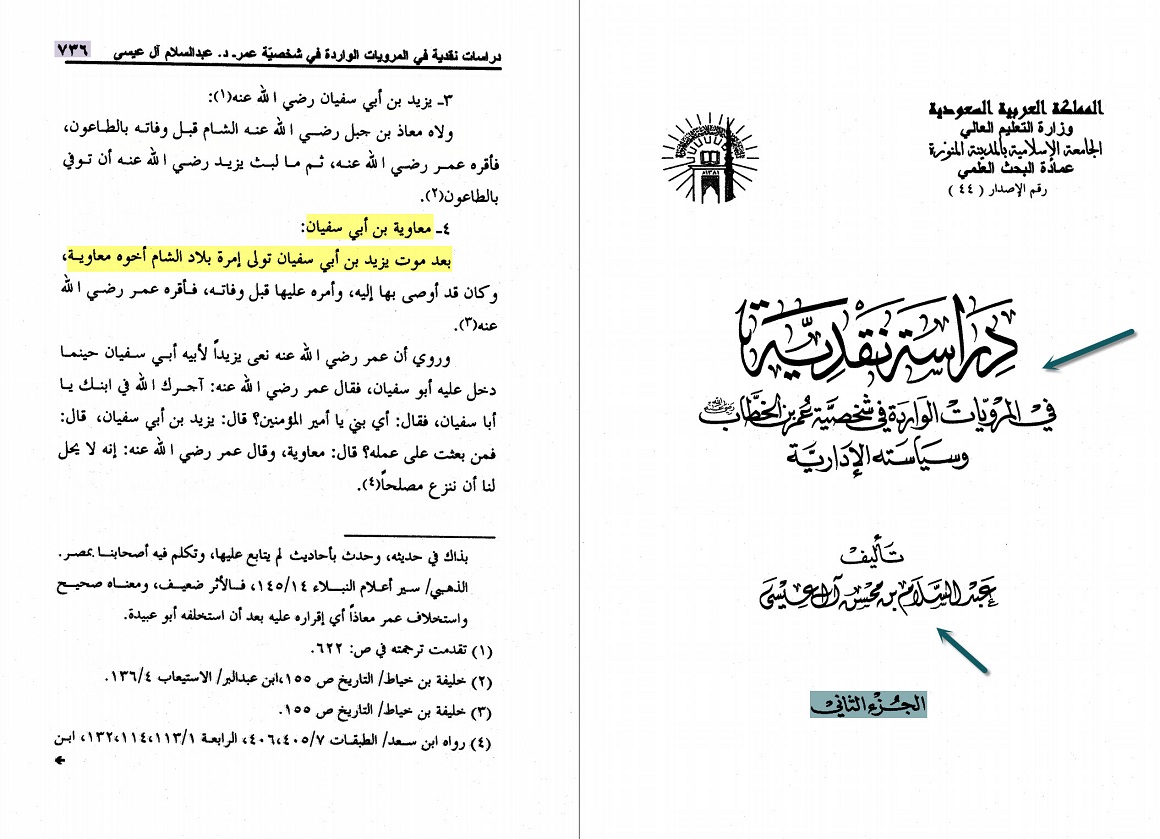 المملكة العربية السعودية
وزارة التعليم العالي
الجامعة الإسلامية بالمدينة المنورة
عمادة البحث العلمي
رقم الإصدار ( ٤٤ )
١٣٨١هـ
دراسة نقدية
في المرويات الواردة في شخصية عمر بن الخطاب
وسياسته الإدارية
تأليف
عبد السلام بن محسن آل عيسى
الجزء الثاني
دراسات نقدية في المرويات الواردة في شخصيّة عمر- د. عبدالسلام آل عيسى ٧٣٦
٣- يزيد بن أبي سفيان رضي الله عنه(١):
ولاه معاذ بن جبل رضي الله عنه الشام قبل وفاته بالطاعون،
فأقره عمر رضي الله عنه، ثم ما لبث يزيد رضي الله عنه أن توفي
بالطاعون(٢).
٤- معاوية بن أبي سفيان:
بعد موت يزيد بن أبي سفيان تولى إمرة بلاد الشام أخوه معاوية،
وكان قد أوصى بها إليه، وأمره عليها قبل وفاته، فأقره عمر رضي الله
عنه(٣).
وروي أن عمر رضي الله عنه نعى يزيداً لأبيه أبي سفيان حينما
دخل عليه أبو سفيان، فقال عمر رضي الله عنه: آجرك الله في ابنك يا
أبا سفيان، فقال: أي بنيّ يا أمير المؤمنين؟ قال: يزيد بن أبي سفيان، قال:
فمن بعثت على عمله؟ قال: معاوية، وقال عمر رضي الله عنه: إنه لا يحل
لنا أن ننزع مصلحاً(٤).
بذاك في حديثه، وحدث بأحاديث لم يتابع عليها، وتكلم فيه أصحابنا بمصر.
الذهبي/ سير أعلام النبلاء ١٤٥/١٤، فالأثر ضعيف، ومعناه صحيح
واستخلاف عمر معاذاً أي إقراره عليه بعد أن استخلفه أبو عبيدة.
(١) تقدمت ترجمته في ص: ٦٢٢.
(٢) خليفة بن خياط/ التاريخ ص ١٥٥،ابن عبدالبر/ الاستيعاب ١٣٦/٤.
(٣) خليفة بن خياط/ التاريخ ص ١٥٥.
(٤) رواه ابن سعد/ الطبقات ٤٠٦،٤٠٥/٧، الرابعة ١٣٢،١١٤،١١٣/١، ابن